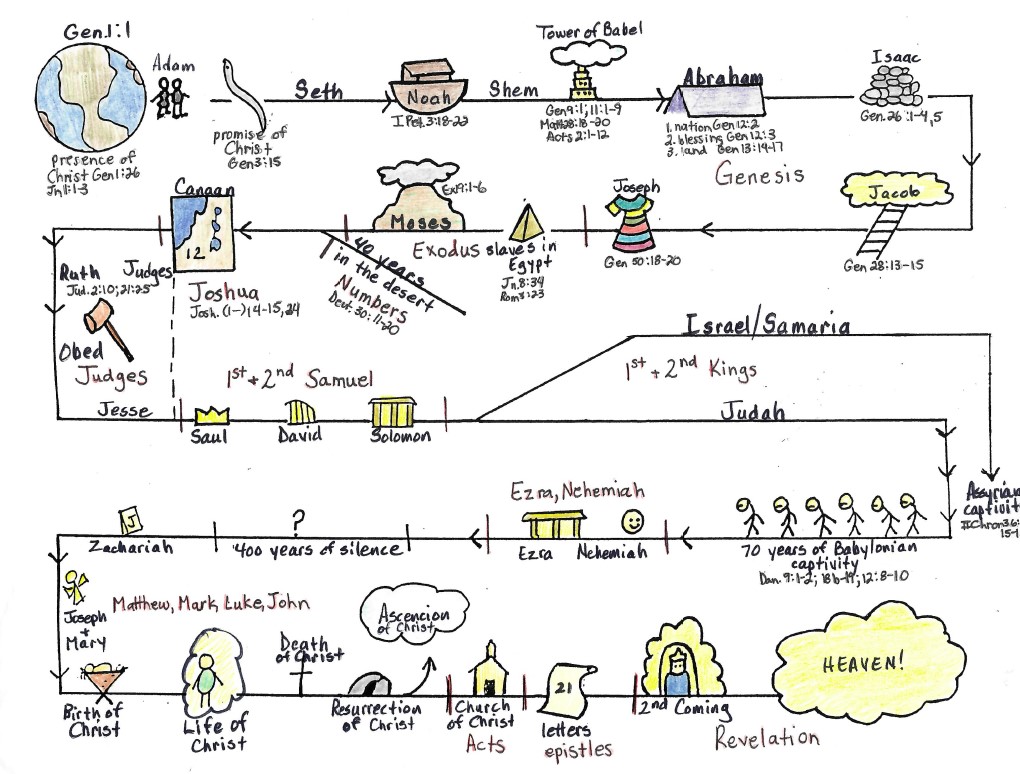 Gen.1:1
Adam
presence of
Christ Gen 1:26
Jn 1:1-3
promise of
Christ
Gen 3:15
Seth
Noah
I Pet. 3:18-22
Shem
Tower of Babel
Gen 9:1; 11:1-9
Matt 28:18-20
Acts 2:1-12
Abraham
1. nation Gen 12:2
2. blessing Gen 12:3
3. land Gen 13:14-17
Genesis
Isaac
Gen. 26:1-4,5
Jacob
Gen 28:13-15
Joseph
Gen 50:18-20
slaves in
Egypt
Jn. 8:34
Rom 3:23
Exodus
Moses
Ex19:1-6
40 years
in the desert
Numbers
Deut. 30:11-20
Canaan
12
Joshua
Josh. (1-) 14-15, 24
Ruth
Judges
Jud. 2:10; 21:25
Obed
Judges
Jesse
1st + 2nd Samuel
Saul
David
Solomon
Israel/Samaria
1st + 2nd Kings
Judah
Assyrian
captivit
II Chron 36:
15-1
70 years of Babylonian
captivity
Dan. 9:1-2; 18b-19; 12:8-10
Ezra, Nehemiah
Ezra
Nehemiah
?
400 years of silence
J
Zachariah
Joseph
+
Mary
Matthew, Mark, Luke, John
Birth of
Christ
Life of
Christ
Death
of Christ
Resurrection
of Christ
Ascencion
of Christ
Church
of Christ
Acts
21
letters
epistles
2nd Coming
Revelation
HEAVEN!